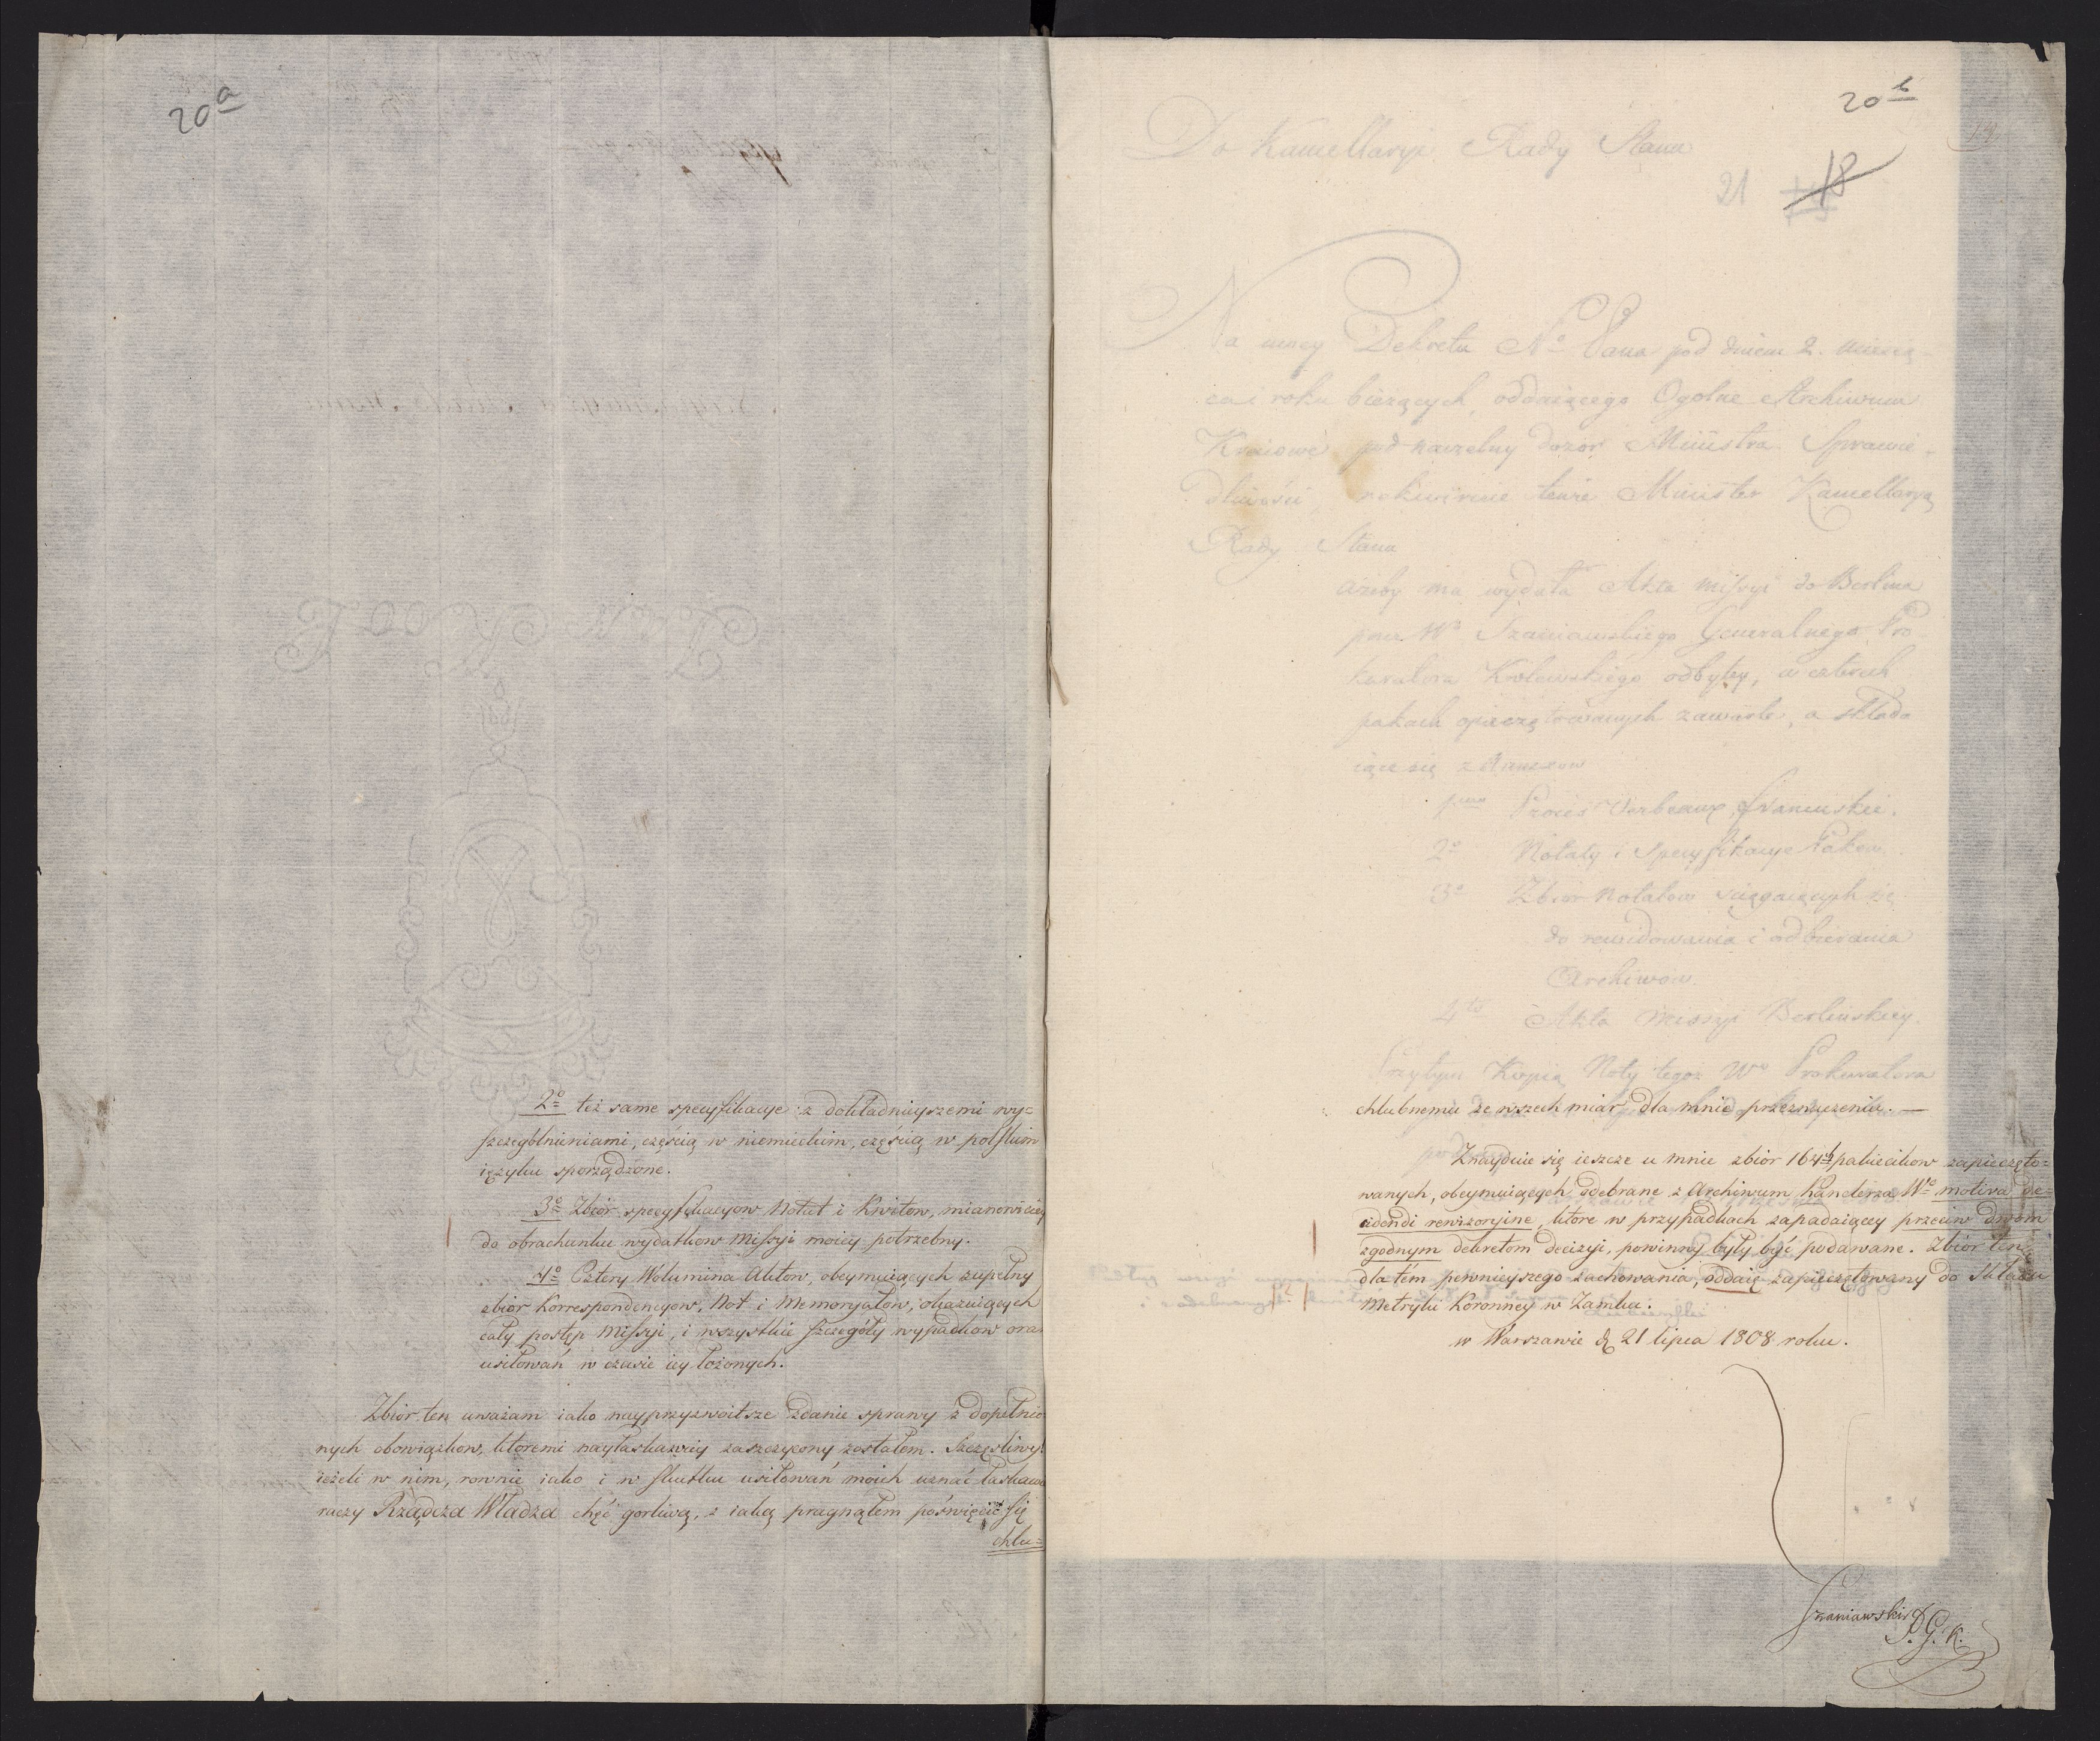 20a
2o też same specyfikacye z dokładnieyszemi wy=
szczególnieniami, częścią w niemieckim, częścią w polskim
ięzyku sporządzone.
3o Zbiór specyfikacyow Notat i Kwitow, mianowicie
do obrachunku wydatkow Missyi moiey potrzebny.
4o Cztery Wolumina Aktow, obeymuiących zupełny
zbior Korrespondencyow, Not i Memoryałow, okazuiących
cały postęp Missyi, i wszystkie szczegóły wypadkow ora
usiłowań w czasie iey łożonych.
Zbiór ten uważam iako nayprzyzwoitsze zdanie sprawy z dopełnio
nych obowiązkow, ktoremi nayłaskawiey zaszczycony zostałem. Szczęśliwy!
ieżeli w nim, rownie iako i w skutku usiłowań moich uznać łaskawie
raczy Rządcza Władza chęć gorliwą, z iaką pragnąłem poświęcić się
chlu=
20b
18
21
Do Kancellaryi Rady Stanu
Na mocy Dekretu No Pana pod dniem 2. miesią
ca i roku bieżących, oddaiącego Ogolne Archiwum
Kraiowe pod naczelny dozor Ministra Sprawie=
dliwości rekwiruie tenże Minister Kancellaryą
Rady Stanu
ażeby mu wydała Akta missyi do Berlina
przez Wo Szaniawskiego Generalnego Pro
kuratora Krolewskiego odbytey, w czterech
pakach opieczętowanych zawarte, a składa
iące się z Annexow
1mo Proces Verbaux Francuskie.
2o Notaty i Specyfikacye Pakow
3o Zbior Notatow sciągaiących się
do rewidowania i odbierania
Archiwow
4to Akta Missyi Berlinskiey.
Przytym Kopią Noty tegoż Wo Prokuratora
chlubnemu ze wszech miar dla mnie przeznaczeniu. —
Znayduie się ieszcze u mnie zbior 164 pakiecikow zapieczęto=
wanych, obeymuiących odebrane z Archiwum Kanclerza Wo motiva de=
cidendi rewizoryine, ktore w przypadkach zapadaiącey przeciw dwom
zgodnym dekretom decizyi, powinny były być podawane. Zbior ten
dla tém pewnieyszego zachowania, oddaię zapieczętowany do Składu
Metryki Koronney w Zamku.
w Warszawie d. 21 lipca 1808 roku.
Szaniawski P.G.K.